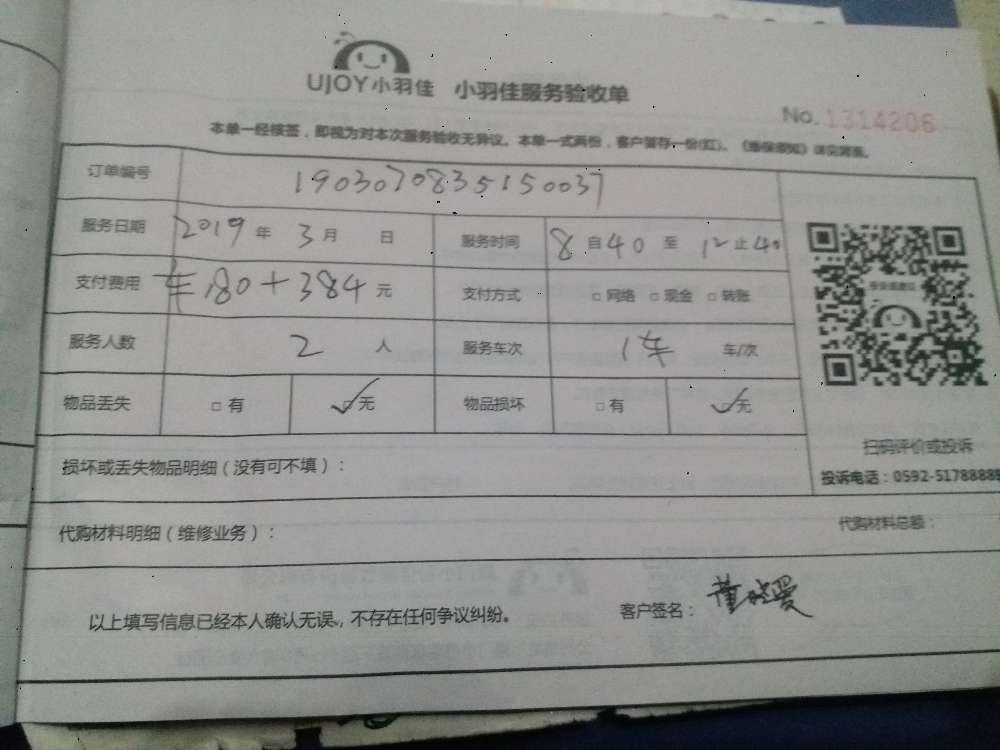 UJOY小羽佳 小羽佳服务验收单
No.1314206
本单一经核签，即视为对本次服务验收无异议。本单一式两份，客户留存一份(红)。《维保须知》详见背面。
订单编号 1903070835150037
服务日期 2019 年 3 月 日 服务时间 8 自 40 至 12 止 40
支付费用 车180+384 元 支付方式 □ 网络 □ 现金 □ 转账
服务人数 2 人 服务车次 1车 车/次
物品丢失 □ 有 ✓□ 无 物品损坏 □ 有 ✓□ 无
扫码评价或投诉
投诉电话：0592-5178888
损坏或丢失物品明细（没有可不填）：
代购材料明细（维修业务）： 代购材料总额：
以上填写信息已经本人确认无误，不存在任何争议纠纷。 客户签名：